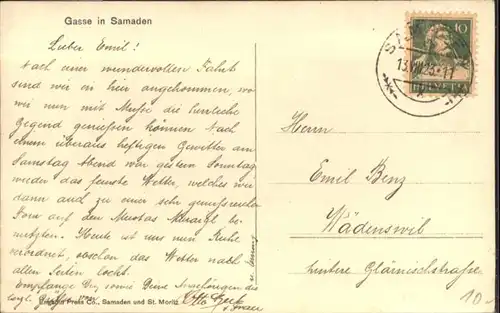 Gasse in Samaden
Lieber Emil!
Nach einer wundervollen Fahrt
sind wir in hier angekommen, wo
wir nun mit Muße die herrliche
Gegend genießen können. Nach
einem überaus heftigen Gewitter am
Samstag Abend war gestern Sonntag
wieder das feinste Wetter, welches wir
dann auch zu einer sehr genussreichen
Tour auf den Muottas Muraigl be-
nützten. Heute ist uns nun Ruhe
verordnet, obschon das Wetter nach
allen Seiten lockt.
Empfange Du, sowie Deine Angehörigen die
Grüße von
Otto Beck
Press Co., Samaden und St. Moritz
10
13.VII.25-11
Herrn
Emil Benz
Wädenswil
hintere Glärnischstraße
10